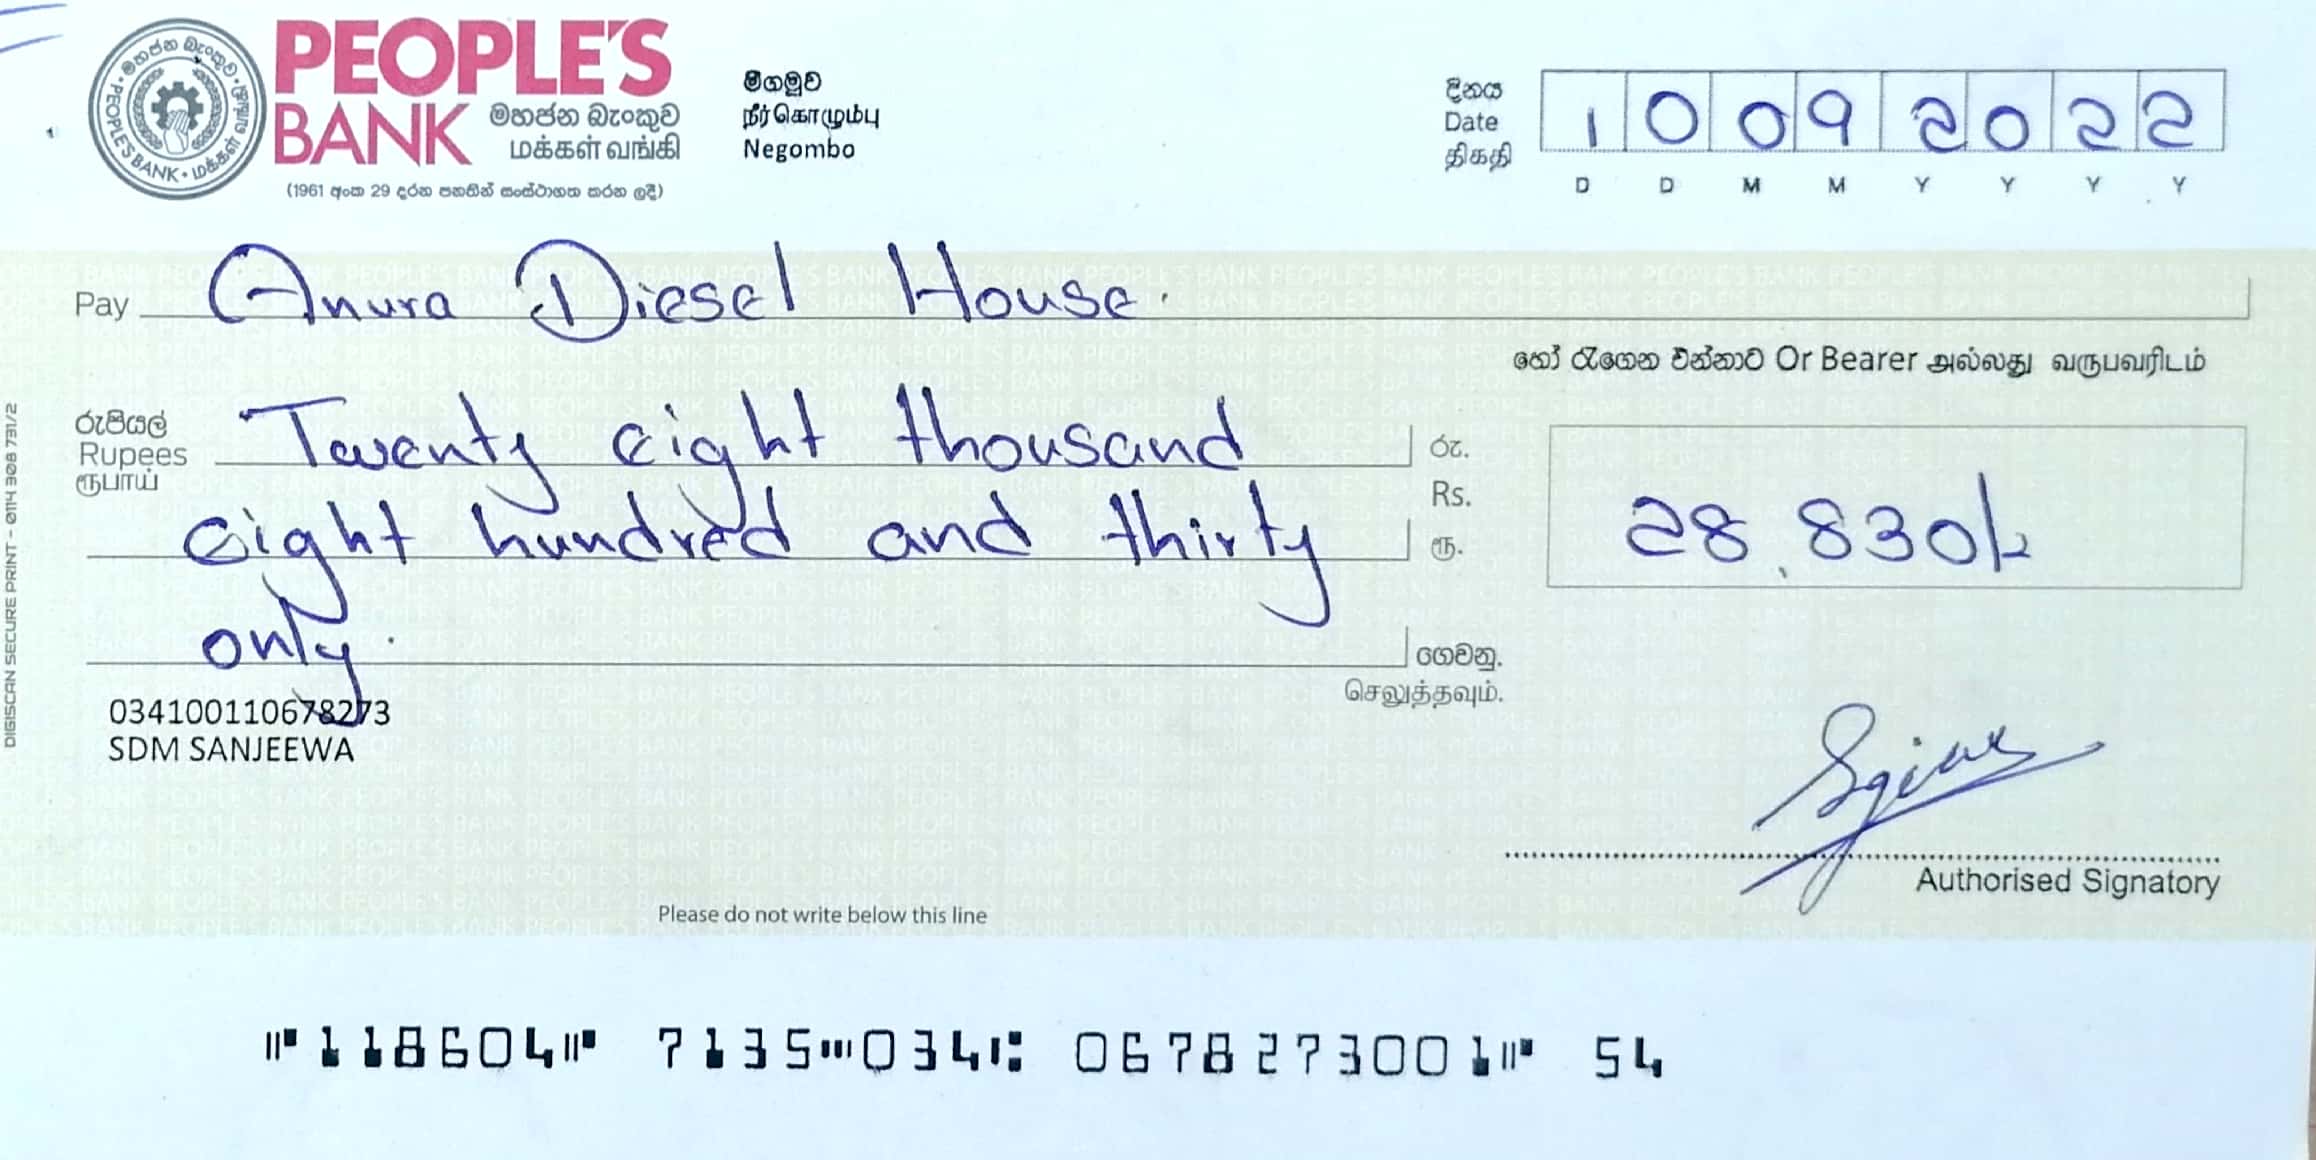 PEOPLE'S
BANK මහජන බැංකුව
மக்கள் வங்கி
(1961 අංක 29 දරන පනතින් සංස්ථාගත කරන ලදී)
මහජන බැංකුව · மக்கள் வங்கி · PEOPLE'S BANK ·
මීගමුව
நீர்கொழும்பு
Negombo
දිනය
Date
திகதி
1 0 0 9 2 0 2 2
D D M M Y Y Y Y
Pay Anura Diesel House.
හෝ රැගෙන එන්නාට Or Bearer அல்லது வருபவரிடம்
රුපියල්
Rupees
ரூபாய்
Twenty eight thousand
eight hundred and thirty
only.
රු.
Rs.
ரூ.
28,830/-
ගෙවනු.
செலுத்தவும்.
034100110678273
SDM SANJEEWA
Authorised Signatory
Please do not write below this line
⑈118604⑈ 7135⑉034⑆ 0678273001⑈ 54
DIGISCAN SECURE PRINT - 0114 308 731/2